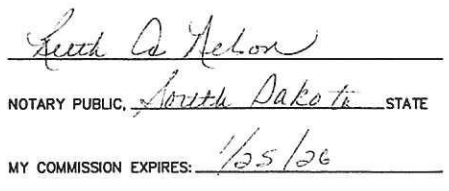 Keith A Nelson
NOTARY PUBLIC, South Dakota STATE
MY COMMISSION EXPIRES: 1/25/26